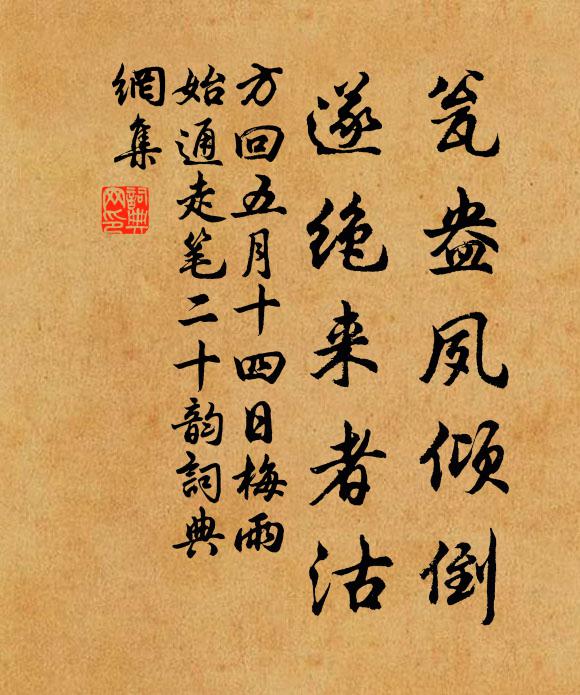 瓮盎夙倾倒
遂绝来者沽
方回五月十四日梅雨
始通走笔二十韵词典
網集
詞典网印